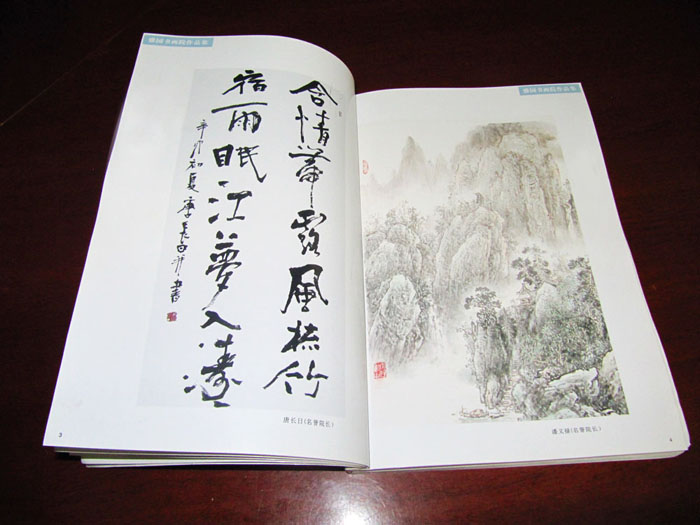 园书画院作品集
含情露風梳竹
宿雨眠江夢入濤
辛卯初夏
唐长日(名誉院长)
3
园书画院作品集
潘文(名誉院长)
4